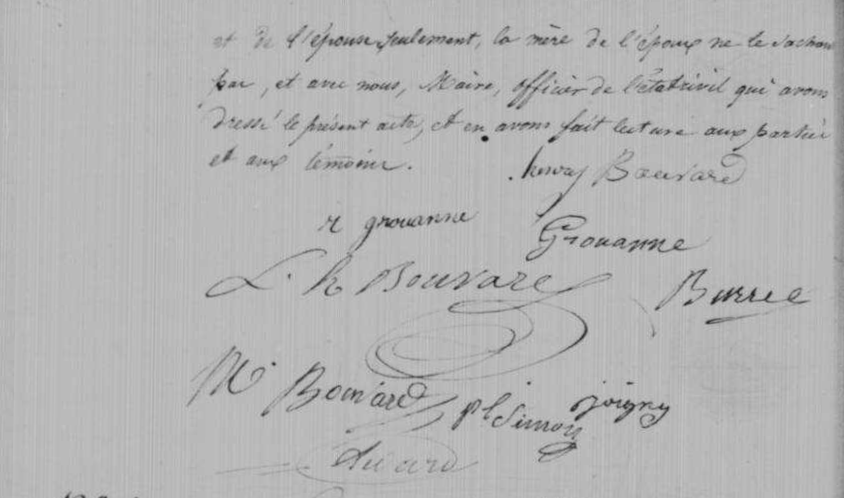 et de l'épouse seulement, la mère de l'époux ne le sachant
pas, et avec nous, Maire, officier de l'état civil qui avons
dressé le présent acte, et en avons fait lecture aux parties
et aux témoins.
henry Bouvard
r grouanne
Grouanne
L. h Bouvard
Burree
M. Bouvard
pl Simon
joigny